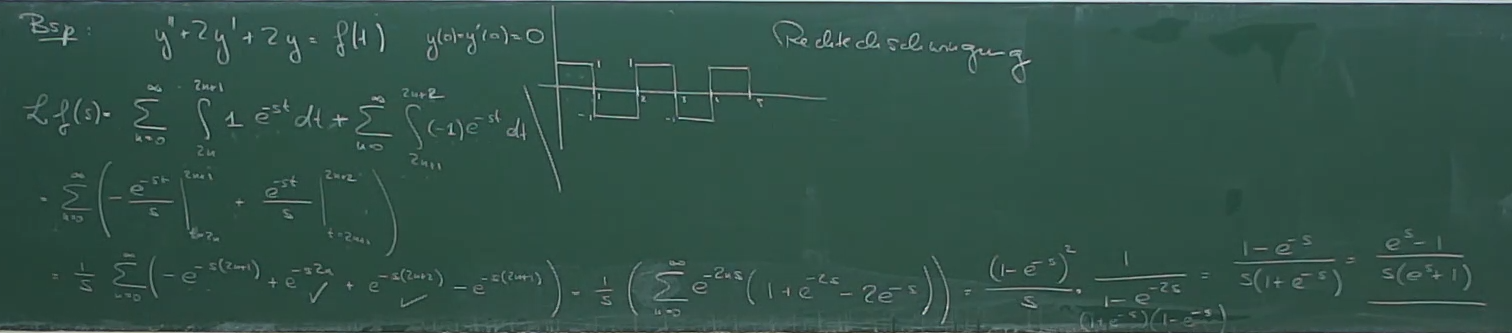 Bsp: y'' + 2y' + 2y = f(t) y(0) = y'(0) = 0 Rechteckschwingung
1 1
1 2 3 4 5
-1 -1
ℒf(s) = ∑_{n=0}^{∞} ∫_{2n}^{2n+1} 1 e^{-st} dt + ∑_{n=0}^{∞} ∫_{2n+1}^{2n+2} (-1) e^{-st} dt
= ∑_{n=0}^{∞} ( - e^{-st}/s |_{t=2n}^{2n+1} + e^{-st}/s |_{t=2n+1}^{2n+2} )
= 1/s ∑_{n=0}^{∞} ( -e^{-s(2n+1)} + e^{-s2n} + e^{-s(2n+2)} - e^{-s(2n+1)} ) = 1/s ( ∑_{n=0}^{∞} e^{-2ns} ( 1 + e^{-2s} - 2e^{-s} ) ) = (1-e^{-s})^2/s · 1/(1-e^{-2s}) = (1-e^{-s})/(s(1+e^{-s})) = (e^s - 1)/(s(e^s + 1))
(1+e^{-s})(1-e^{-s})